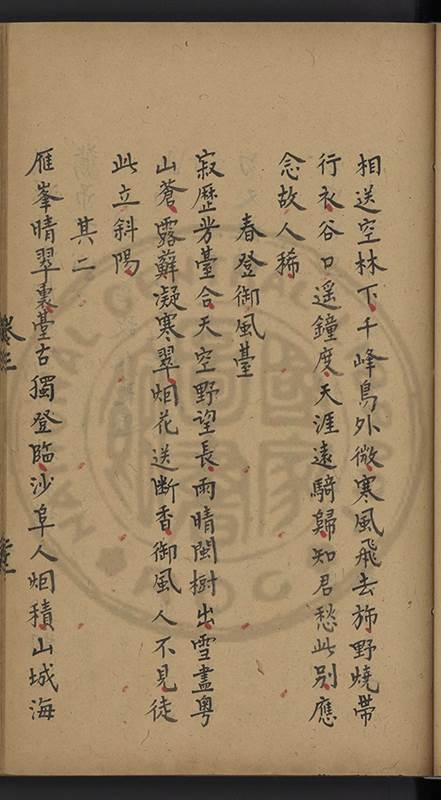 相送空林下千峰鳥外微寒風飛去旆野燒帶
行衣谷口遥鐘度天涯遠騎歸知君愁此別應
念故人稀
春登御風臺
寂歷芳臺合天空野望長雨晴閩樹出雪盡粤
山蒼露蘚凝寒翠烟花送断香御風人不見徒
此立斜陽
其二
雁峯晴翠裏臺古獨登臨沙阜人烟積山城海